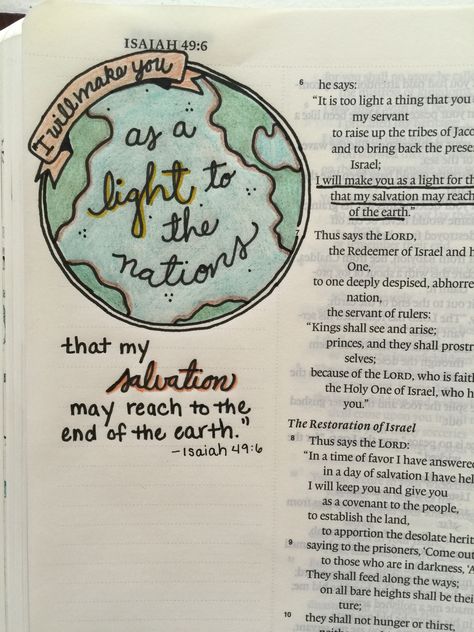 ISAIAH 49:6
I will make you
as a
light to
the
nations
that my
salvation
may reach to the
end of the earth."
-Isaiah 49:6
6 he says:
“It is too light a thing that you
my servant
to raise up the tribes of Jaco
and to bring back the prese
Israel;
I will make you as a light for th
that my salvation may reach
of the earth.”
7 Thus says the LORD,
the Redeemer of Israel and h
One,
to one deeply despised, abhorre
nation,
the servant of rulers:
“Kings shall see and arise;
princes, and they shall prostr
selves;
because of the LORD, who is faith
the Holy One of Israel, who h
you.”
The Restoration of Israel
8 Thus says the LORD:
“In a time of favor I have answere
in a day of salvation I have hel
I will keep you and give you
as a covenant to the people,
to establish the land,
to apportion the desolate herit
9 saying to the prisoners, ‘Come out
to those who are in darkness, ‘A
They shall feed along the ways;
on all bare heights shall be thei
ture;
10 they shall not hunger or thirst,